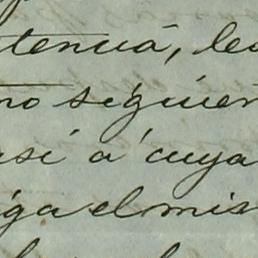 tencia, le
no siguien
asi á cuya
iga el mis